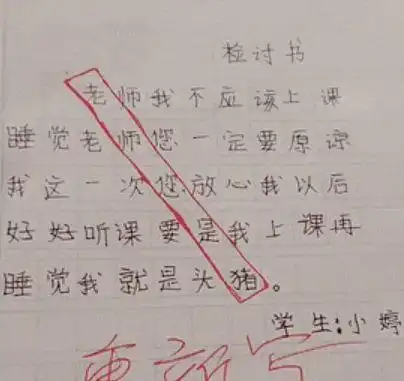 检讨书
老师我不应该上课
睡觉老师您一定要原谅
我这一次您放心我以后
好好听课要是我上课再
睡觉我就是头猪。
学生:小婷
重新写